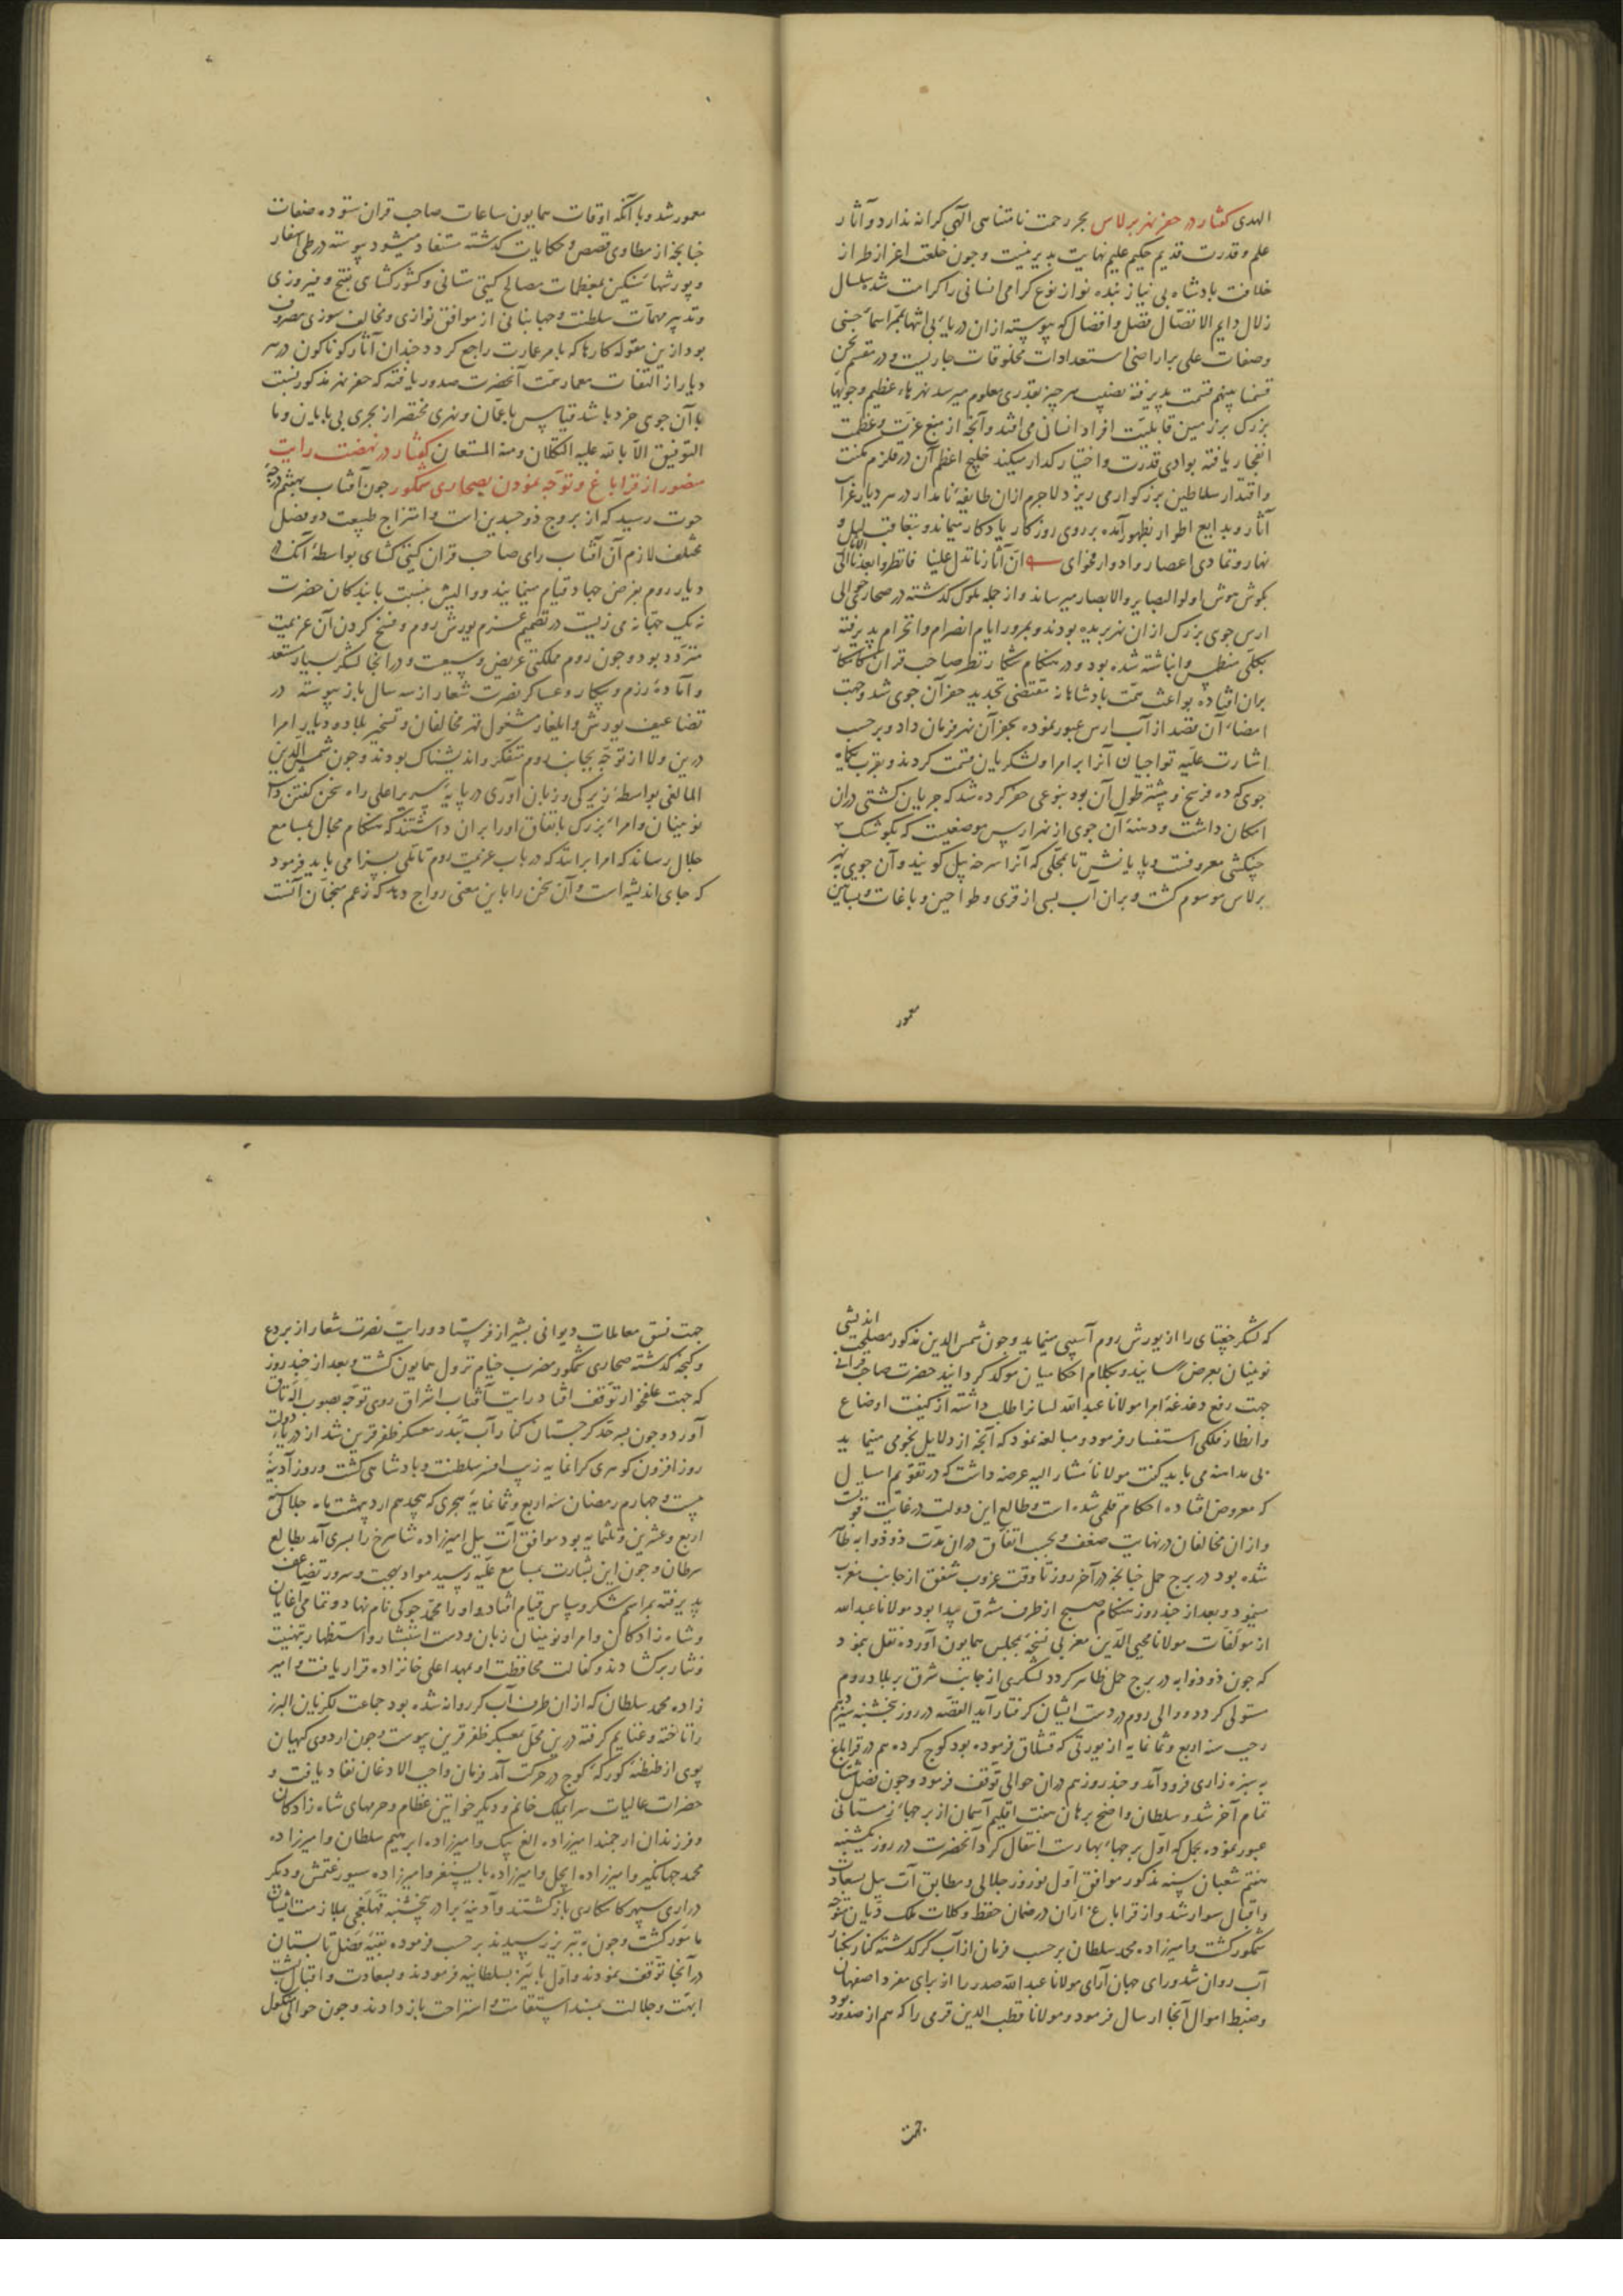 الهدی گفتار در حفر نهر برلاس بحر رحمت نامتناهی الهی کرانه ندارد و آثار
علم و قدرت قدیم حکیم علیم نهایت پذیر نیست و جون خلعت اعزاز طراز
خلافت بادشاه بی نیاز بنده نواز نوع کرامی انسانی را کرامت شد سلسال
زلال دایم الاتصال فضل و افضال که پیوسته از ان دریای بی انتها بممر اسماء حسنی
وصفات علی بر اراضی استعدادات مخلوقات جاریست و در مقسم نحن
قسمنا بینهم قسمت پذیرفته نصیب هر جیز بقدری معلوم میرسد نهرهای عظیم و جویها
بزرک بر زمین قابلیت افراد انسانی می افتد و آنجه از منبع عزت و عظمت
انفجار یافته بوادی قدرت و اختیار کذار میکند خلیج اعظم آن در قلزم مکنت
و اقتدار سلاطین بزرکوار می ریزد لاجرم ازان طایفه نامدار در هر دیار غرا
آثار و بدایع اطوار بظهور آمده بر روی روزکار یادکار میماند و بتعاقب لیل و
نهار و تمادی اعصار و ادوار فحوای ان آثارنا تدل علینا فانظروا بعدنا الی الآثار
بکوش هوش اولوا البصایر والابصار میرساند و از جمله ملوک کذشته در صحاری حوالی
ارس جوی بزرک ازان نهر بریده بودند و بمرور ایام انصرام و انخرام پذیرفته
بکلی منطمس و انباشته شده بود و در هنکام شکار نظر صاحب قران کامکار
بران افتاده بواعث همت بادشاهانه مقتضی تجدید حفر آن جوی شد و جهت
امضاء آن قصد از آب ارس عبور نموده بحفر آن نهر فرمان داد و بر حسب
اشارت علیه تواجیان آنرا بر امرا و لشکریان قسمت کردند و بقرب یکماه
جوی که ده فرسخ و بیشتر طول آن بود بنوعی حفر کرده شد که جریان کشتی دران
امکان داشت و دهنه آن جوی از نهر ارس موضعیست که بکوشک
جنکشی معروفست و پایانش تا بمحلی که آنرا سرخه پل کویند و آن جوی بنهر
برلاس موسوم کشت و بران آب بسی از قری و طواحین و باغات و بساتین
معمور
معمور شد و با آنکه اوقات همایون ساعات صاحب قران ستوده صفات
جنانجه از مطاوی قصص و حکایات کذشته مستفاد میشود پیوسته در طی اسفار
و یورشهای سنکین بمعظمات مصالح کیتی ستانی و کشورکشای بفتح و فیروزی
و تدبیر مهمات سلطنت و جهانبانی از موافق نوازی و مخالف سوزی مصروف
بود ازین مقوله کارها که بامر عمارت راجع کردد جندان آثار کوناکون در هر
دیار از التفات معمار همت آنحضرت صدور یافته که حفر نهر مذکور نسبت
باآن جوی خرد باشد قیاس باعمان و نهری مختصر از بحری بی پایان و ما
التوفیق الا بالله علیه التکلان و منه المستعان گفتار در نهضت رایت
منصور از قراباغ و توجه نمودن بصحاری شمکور جون آفتاب بهشتم درجه
حوت رسید که از بروج ذو جسدین است و امتزاج طبیعت دو فصل
مختلف لازم آن آفتاب رای صاحب قران کیتی کشای بواسطه آنکه در
دیار روم بفرض جهاد قیام مینمایند و والیش بنسبت با بندکان حضرت
نه یک جهتانه می زیست در تصمیم عزم یورش روم و فسخ کردن آن عزیمت
متردد بود و جون روم مملکتی عریض و وسیعست و در انجا لشکر بسیار مستعد
و آماده رزم و پیکار و عساکر نصرت شعار از سه سال باز پیوسته در
تضاعیف یورش و ایلغار مشغول قهر مخالفان و تسخیر بلاد و دیار امرا
درین ولا از توجه بجانب روم متفکر و اندیشناک بودند و جون شمس الدین
المالغی بواسطه زیرکی و زبان آوری در پایه سریر اعلی راه سخن کفتن داشت
نوینان و امراء بزرک باتفاق او را بران داشتند که هنکام مجال بمسامع
جلال رساند که امرا برانند که در باب عزیمت روم تاملی بسزا می باید فرمود
که جای اندیشه است و آن سخن را باین معنی رواج دهد که زعم منجمان آنست
که لشکر جغتای را از یورش روم آسیبی مینماید و جون شمس الدین مذکور مصلحت اندیشی
نوینان بعرض رسانید و بکلام احکامیان موکد کردانید حضرت صاحب قرانی
جهت رفع دغدغه امرا مولانا عبدالله لسان را طلب داشته از کیفیت اوضاع
و انظار فلکی استفسار فرمود و مبالغه نمود که آنجه از دلایل نجومی مینماید
بی مداهنه می باید کفت مولانا مشار الیه عرضه داشت که در تقویم امسال
که معروض افتاده احکام قلمی شده است و طالع این دولت در غایت قوت
و ازان مخالفان در نهایت ضعف و بحسب اتفاق دران مدت ذو ذوابه ظاهر
شده بود در برج حمل جنانجه در آخر روز تا وقت غروب شفق از جانب مغرب
مینمود و بعد از جند روز هنکام صبح از طرف شرق پیدا بود مولانا عبدالله
از مولفات مولانا محیی الدین مغربی نسخه بمجلس همایون آورده نقل نمود
که جون ذو ذوابه در برج حمل ظاهر کردد لشکری از جانب شرق بر بلاد روم
مستولی کردد و والی روم در دست ایشان کرفتار آید القصه در روز پنجشنبه سیزدهم
رجب سنه اربع و ثمانمایه از یورتی که قشلاق فرموده بود کوج کرده هم در قراباغ
به سبزه زاری فرود آمد و جند روز هم دران حوالی توقف فرمود و جون فصل شتا
تمام آخر شد و سلطان واضح برهان هفت اقلیم آسمان از برجهاء زمستانی
عبور نموده بحمل که اول برجهاء بهارست انتقال کرد آنحضرت در روز یکشنبه
هفتم شعبان سنه مذکور موافق اول نوروز جلالی و مطابق آت ییل بسعادت
و اقبال سوار شد و از قراباغ اران در ضمان حفظ و کلات ملک دیان متوجه
شمکور کشت و امیرزاده محمد سلطان بر حسب فرمان از آب کر کذشته کنار بکنار
آب روان شد و رای جهان آرای مولانا عبدالله صدر را از برای مفرد اصفهان
و ضبط اموال آنجا ارسال فرمود و مولانا قطب الدین قرمی را که هم از صدور بود
جهت
جهت نسق معاملات دیوانی بشیراز فرستاد و رایت نصرت شعار از بردع
و کنجه کذشته صحاری شمکور مضرب خیام نزول همایون کشت و بعد از جند روز
که جهت علفخوار توقف افتاد رایت آفتاب اشراق روی توجه بصوب آلاتاق
آورد و جون بسرحد کرجستان کنار آب تبدر معسکر ظفر قرین شد از دریای دولت
روز افزون کوهری کرانمایه زیب افسر سلطنت و بادشاهی کشت و روز آدینه
بیست و جهارم رمضان سنه اربع و ثمانمایه هجری که هجدهم اردیبهشت ماه جلالی سنه
اربع و عشرین و ثلثمایه بود موافق آت ییل امیرزاده شاهرخ را پسری آمد بطالع
سرطان و جون این بشارت بمسامع علیه رسید مواد بهجت و سرور تضاعف
پذیرفته بمراسم شکر و سپاس قیام افتاد و او را محمد جوکی نام نهاد و تمامی آغایان
و شاه زادکان و امرا و نوینان زبان و دست استبشار و استظهار بتهنیت
و نثار برکشادند و کفالت محافظت او بمهد اعلی خانزاده قرار یافت و امیر
زاده محمد سلطان که از ان طرف آب کر روانه شده بود جماعت لکزیان البرز
را تاخته و غنایم کرفته درین محل بمعسکر ظفر قرین پیوست و جون اردوی کیهان
پوی از طنطنه کورکه کوج در حرکت آمد فرمان واجب الاذعان نفاذ یافت و
حضرات عالیات سرای ملک خانم و دیکر خواتین عظام و حرمهای شاه زادکان
و فرزندان ارجمند امیرزاده الغ بیک و امیرزاده ابرهیم سلطان و امیرزاده
محمد جهانکیر و امیرزاده ایجل و امیرزاده بایسنغر و امیرزاده سیورغتمش و دیکر
دراری سپهر کامکاری بازکشتند و آدینه برادر پنجشنبه قهلغجی بملازمت ایشان
مامور کشت و جون به تبریز رسیدند بر حسب فرموده بقیه فصل تابستان
در آنجا توقف نمودند و اول پاییز بسلطانیه فرمودند و بسعادت و اقبال
ابهت و جلالت بمسند استقامت و استراحت باز دادند و جون حوالی منکول